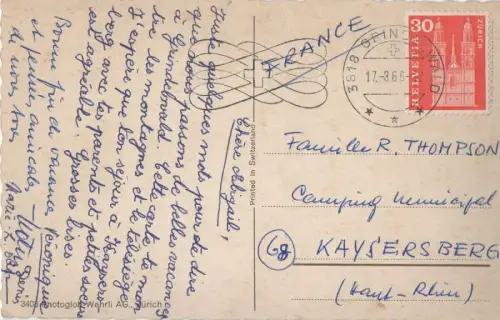 Chère Abigail,
Juste quelques mots pour te dire
que nous passons de belles vacances
à Grindelwald. Cette carte te mon
tre les montagnes et le télésiège.
J'espère que ton séjour à Kaysers
berg avec tes parents et petites sœurs
est agréable. Grosses bises.
Véronique
Bonne fin de vacances
et pensées amicales
Denis
3405 Photoglob-Wehrli AG., Zürich
Printed in Switzerland
FRANCE
3818 GRINDELWALD
17.-8.66
HELVETIA
30
ZÜRICH
Famille R. THOMPSON
Camping Municipal
68 KAYSERSBERG
(Haut-Rhin)